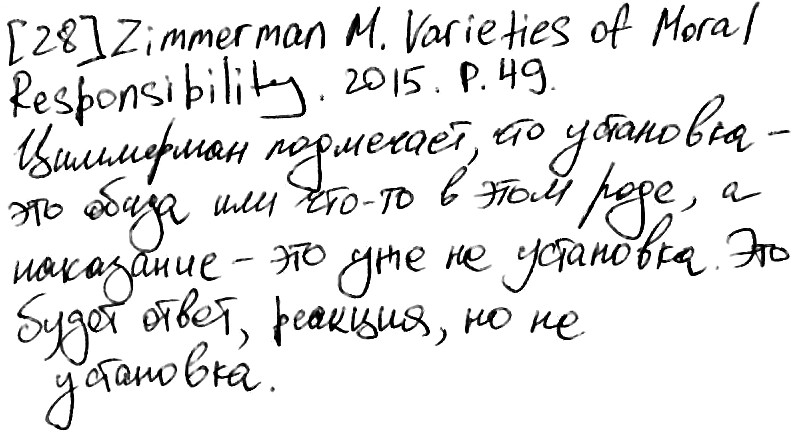 [28] Zimmerman M. Varieties of Moral
Responsibility. 2015. P. 49.
Циммерман подмечает, что установка –
это обида или что-то в этом роде, а
наказание – это уже не установка. Это
будет ответ, реакция, но не
установка.